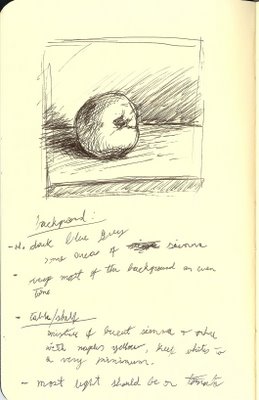 background:
- dark blue grey
some areas of sienna
- very most of the background an even
tone
- table/shelf
mixture of burnt sienna or ochre
with naples yellow, keep whites to
a very minimum.
- most light should be on tomato